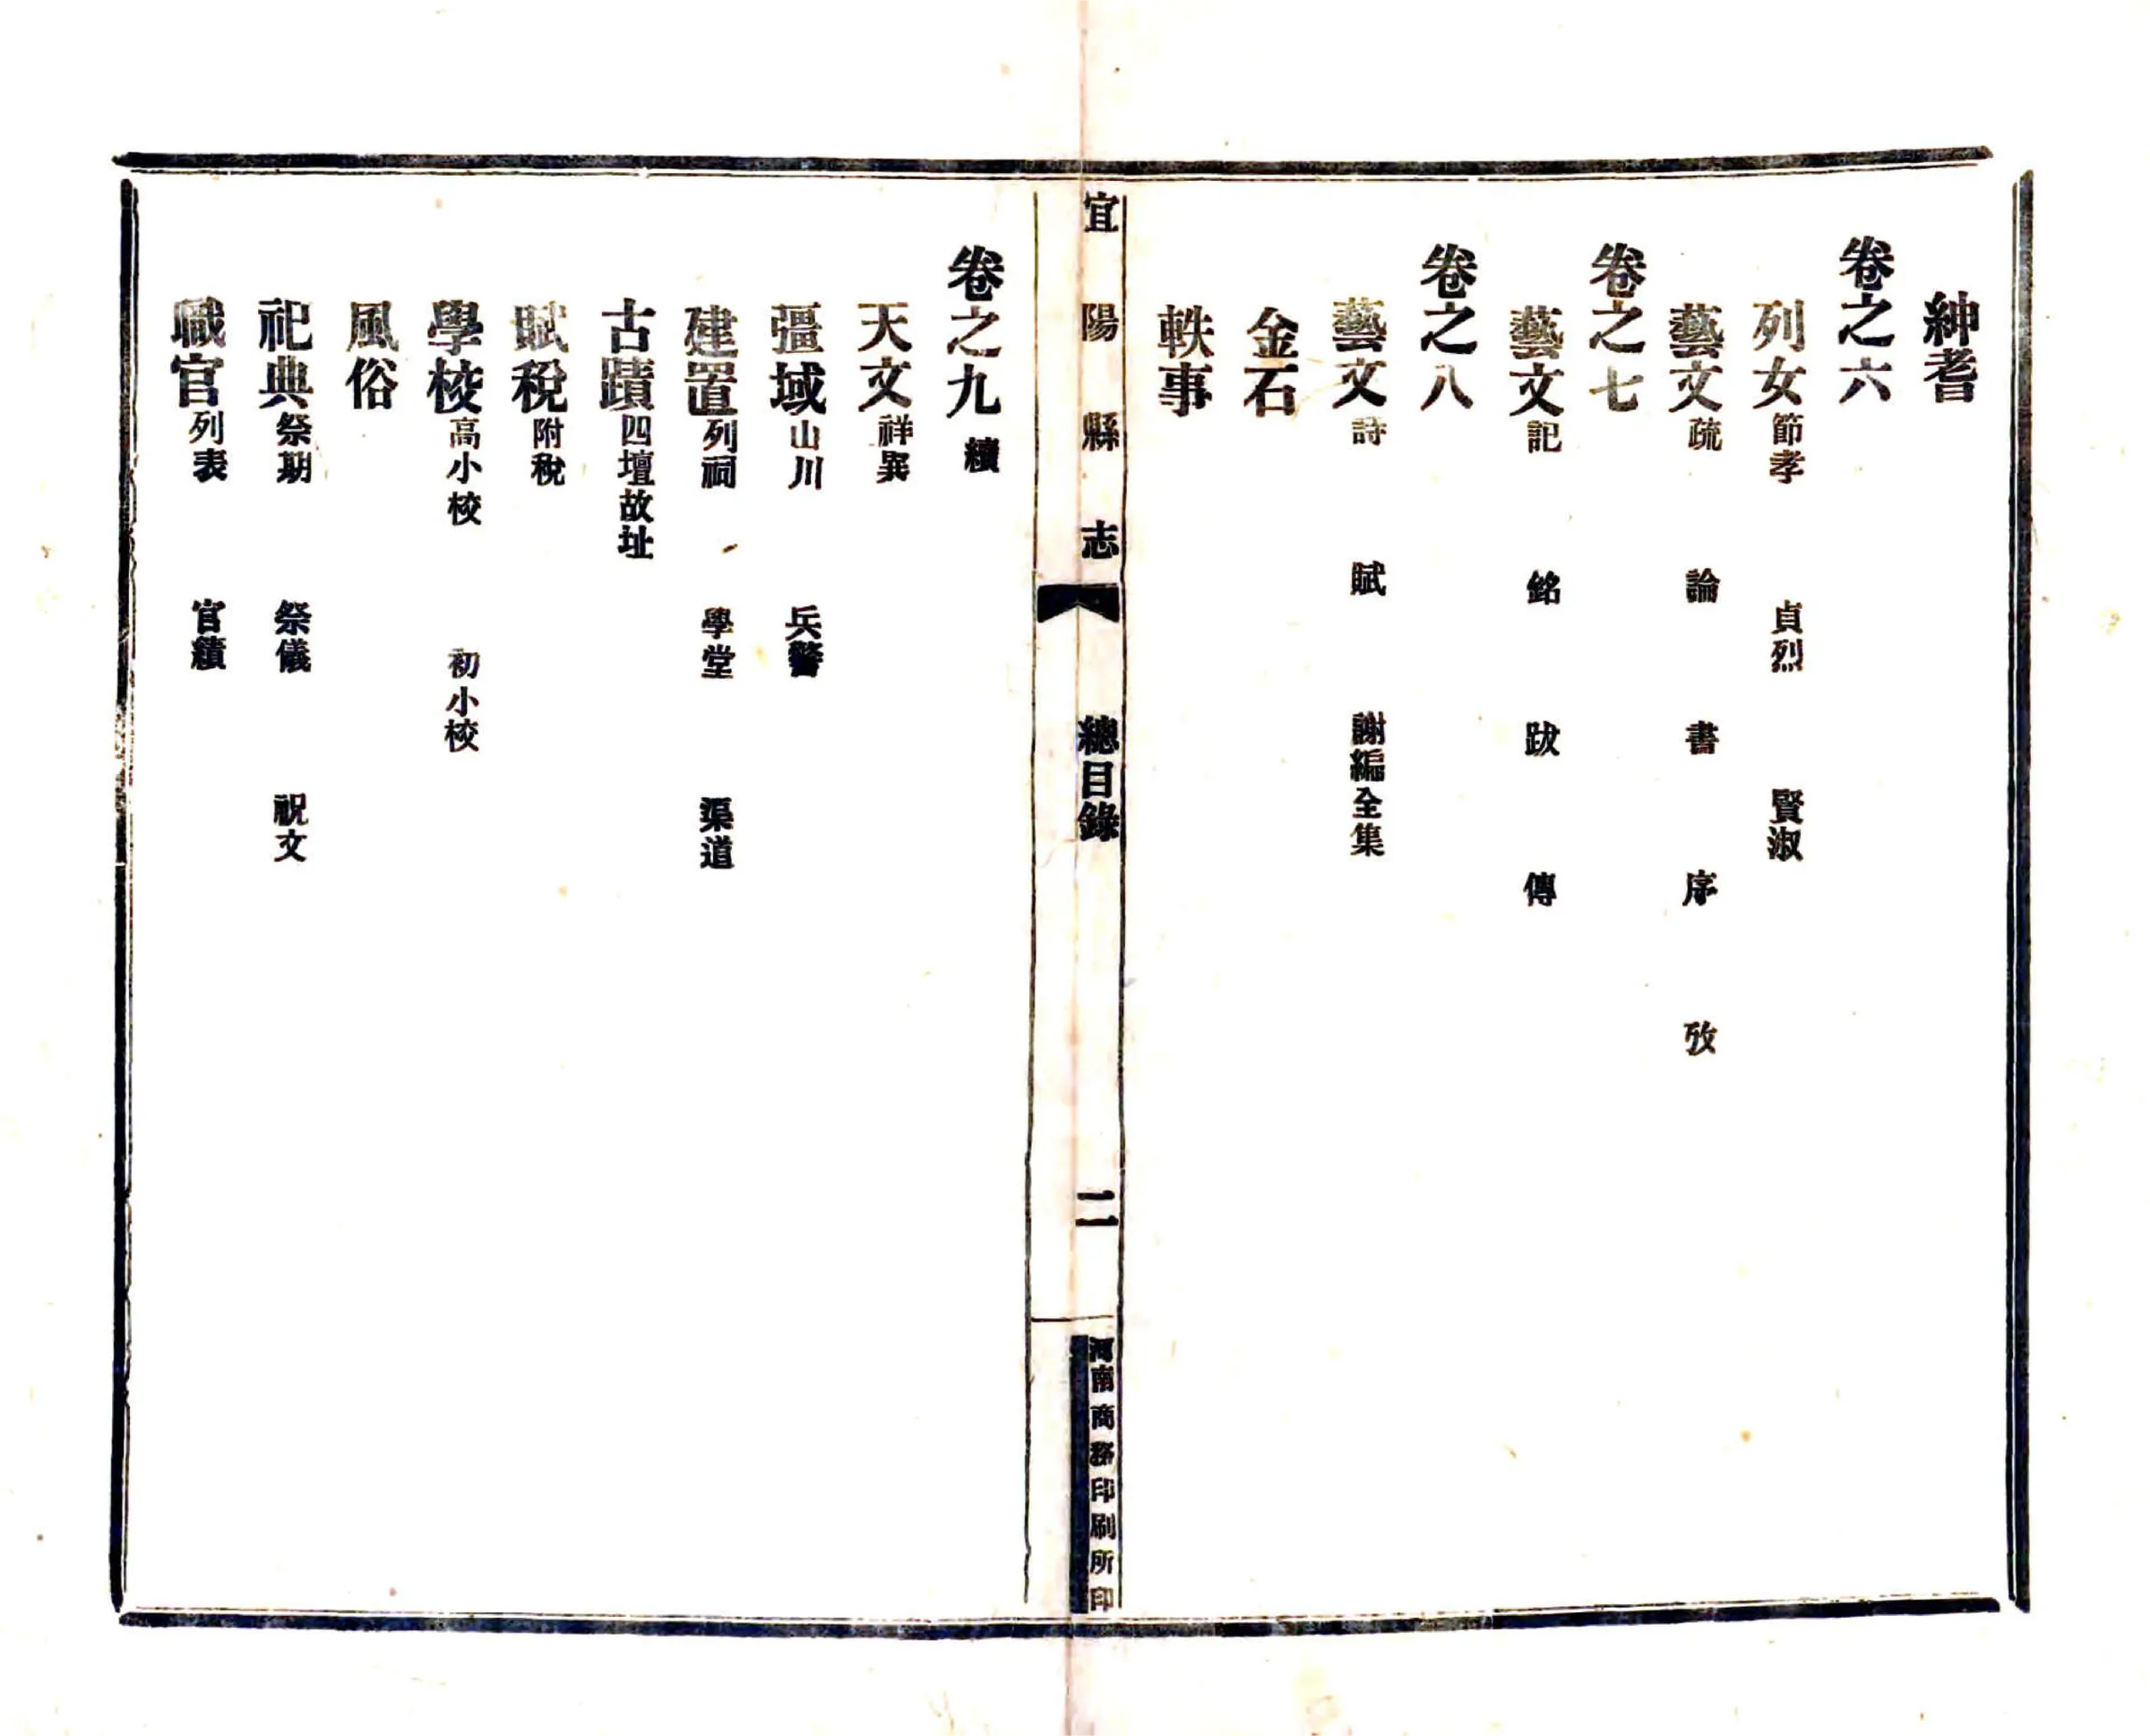 紳耆
卷之六
列女節孝 貞烈 賢淑
藝文疏 論 書 序 攷
卷之七
藝文記 銘 跋 傳
卷之八
藝文詩 賦 謝編全集
金石
軼事
宜陽縣志 總目錄 二 河南商務印刷所印
卷之九續
天文祥異
彊域山川 兵警
建置列祠 學堂 渠道
古蹟四壇故址
賦稅附稅
學校高小校 初小校
風俗
祀典祭期 祭儀 祝文
職官列表 官績